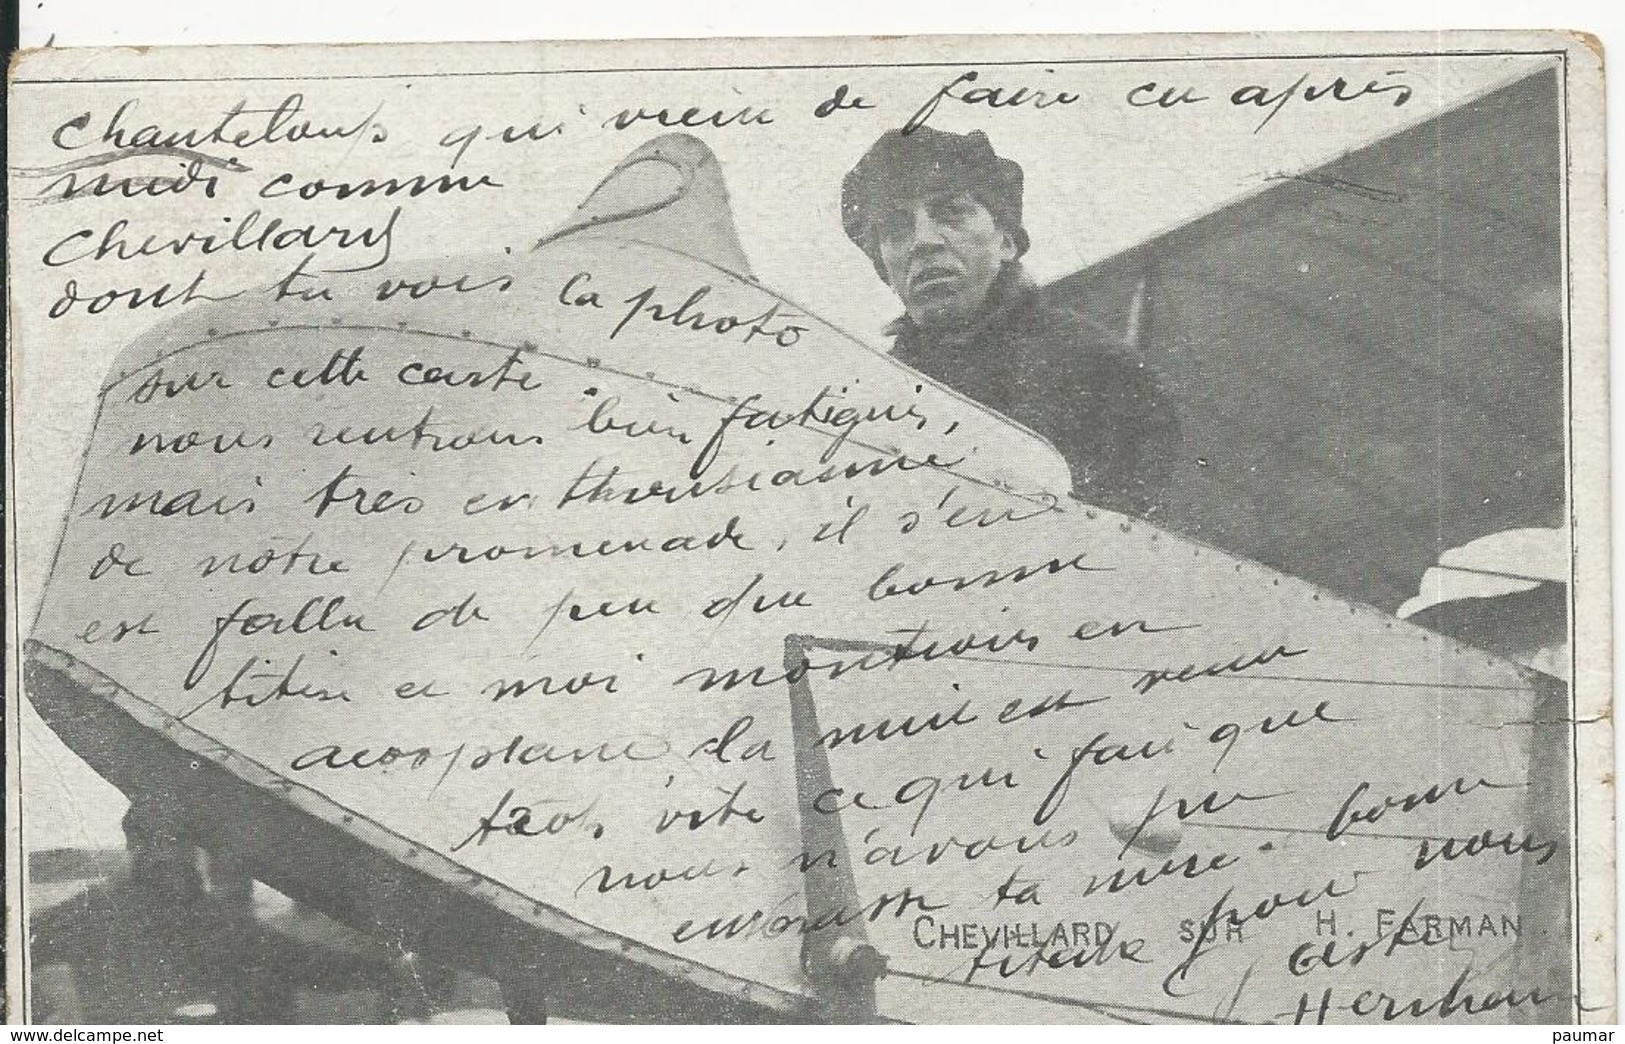 Chanteloup qui vien de faire cet après
midi comme
Chevillard
dont tu vois la photo
sur cette carte.
nous rentrons bien fatigués,
mais très enthousiasmé
de notre promenade, il s'en
est fallu de peu que bonne
titine et moi montions en
aeroplane, la nuit est venu
vite ce qui fait que
nous n'avons pu
embrasse ta mere. bonne
CHEVILLARD SUR H. FARMAN
pour nous
delcampe.net
paumar